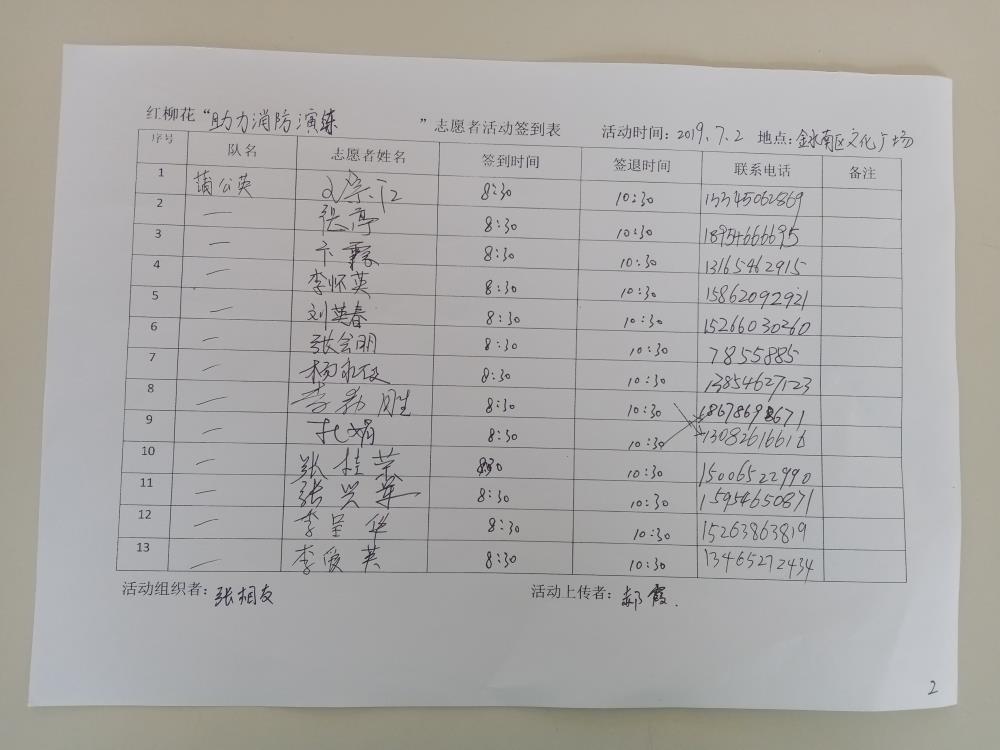 红柳花“助力消防演练”志愿者活动签到表 活动时间：2019.7.2 地点：金水南区文化广场
序号 队名 志愿者姓名 签到时间 签退时间 联系电话 备注
1 蒲公英 8:30 10:30 13345062869
2 — 张亭 8:30 10:30 18954666695
3 — 卞霖 8:30 10:30 13165462915
4 — 李怀英 8:30 10:30 15862092921
5 — 刘英春 8:30 10:30 15266030260
6 — 张会明 8:30 10:30 7855885
7 — 8:30 10:30 13854627123
8 — 8:30 10:30 18678698671
9 — 8:30 10:30 13082616616
10 — 张桂荣 8:30 10:30 15006522990
11 — 张兴华 8:30 10:30 15954650871
12 — 李呈华 8:30 10:30 15263863819
13 — 李爱英 8:30 10:30 13465272434
活动组织者：张相友 活动上传者：郝霞.
2